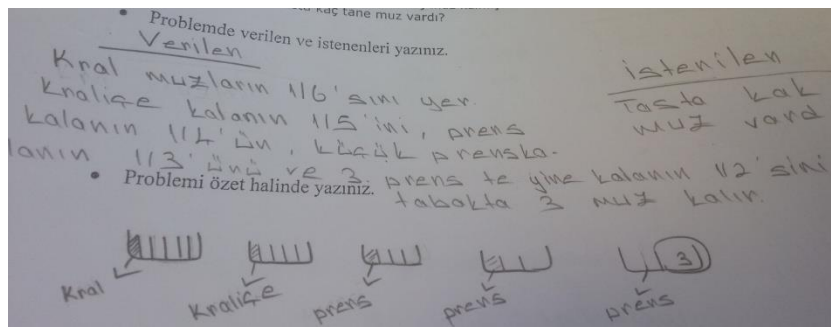 kaç tane muz vardı?
• Problemde verilen ve istenenleri yazınız.
Verilen
Kral muzların 1/6'sını yer.
Kraliçe kalanın 1/5'ini, prens
kalanın 1/4'ün, küçük prenska-
lanın 1/3'ünü ve 3. prens te yine kalanın 1/2'sini
tabakta 3 muz kalır.
istenilen
Tasta kak
muz vard
• Problemi özet halinde yazınız.
Kral
Kraliçe
prens
prens
prens
3